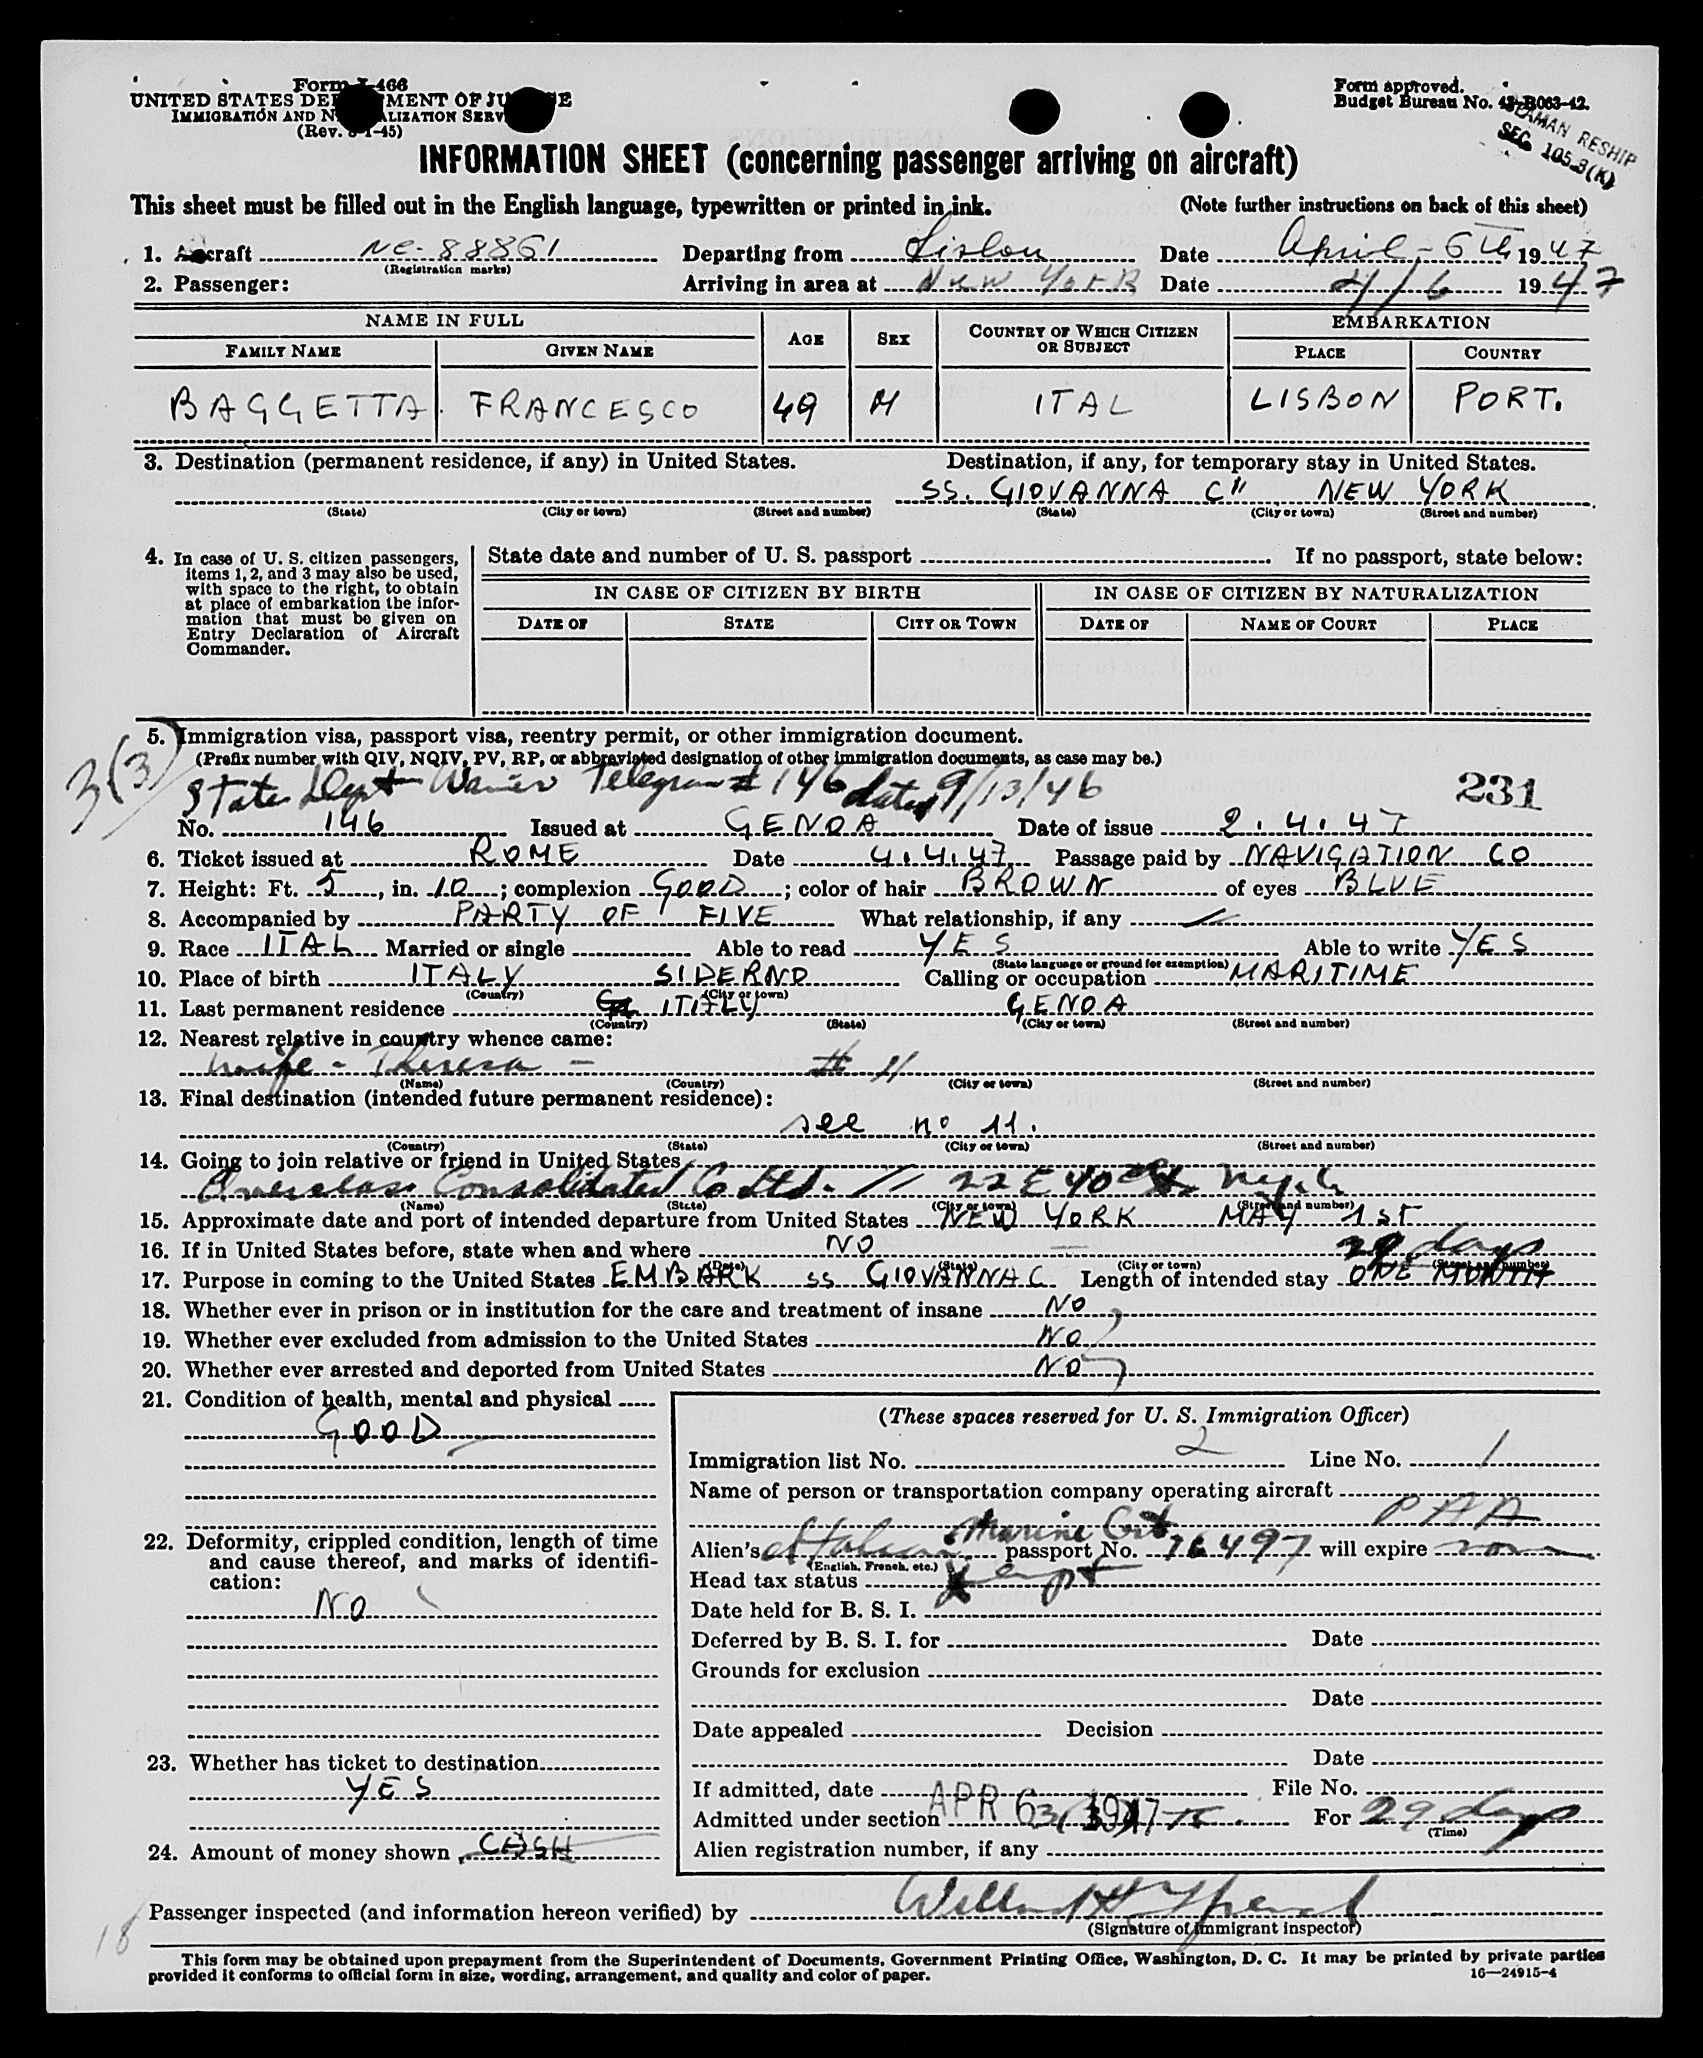 Form I-466
UNITED STATES DEPARTMENT OF JUSTICE
IMMIGRATION AND NATURALIZATION SERVICE
(Rev. 8-1-45)
Form approved.
Budget Bureau No. 43-R063-42.
SEAMAN RESHIP
SEC 105.3(K)
INFORMATION SHEET (concerning passenger arriving on aircraft)
This sheet must be filled out in the English language, typewritten or printed in ink. (Note further instructions on back of this sheet)
1. Aircraft NC-88861 Departing from Lisbon Date April - 5th 1947
(Registration marks)
2. Passenger: Arriving in area at New York Date 4/6 1947
NAME IN FULL AGE SEX COUNTRY OF WHICH CITIZEN OR SUBJECT EMBARKATION
FAMILY NAME GIVEN NAME PLACE COUNTRY
BAGGETTA FRANCESCO 49 M ITAL LISBON PORT.
3. Destination (permanent residence, if any) in United States. Destination, if any, for temporary stay in United States.
SS. GIOVANNA C" NEW YORK
(State) (City or town) (Street and number) (State) (City or town) (Street and number)
4. In case of U. S. citizen passengers, items 1, 2, and 3 may also be used, with space to the right, to obtain at place of embarkation the information that must be given on Entry Declaration of Aircraft Commander.
State date and number of U. S. passport If no passport, state below:
IN CASE OF CITIZEN BY BIRTH IN CASE OF CITIZEN BY NATURALIZATION
DATE OF STATE CITY OR TOWN DATE OF NAME OF COURT PLACE
3(3)
5. Immigration visa, passport visa, reentry permit, or other immigration document.
(Prefix number with QIV, NQIV, PV, RP, or abbreviated designation of other immigration documents, as case may be.)
State Dept Waiver Telegram # 146 dated 9/13/46
231
No. 146 Issued at GENOA Date of issue 2.4.47
6. Ticket issued at ROME Date 4.4.47 Passage paid by NAVIGATION CO
7. Height: Ft. 5, in. 10; complexion GOOD; color of hair BROWN of eyes BLUE
8. Accompanied by PARTY OF FIVE What relationship, if any
9. Race ITAL Married or single Able to read YES Able to write YES
(State language or ground for exemption)
10. Place of birth ITALY SIDERNO Calling or occupation MARITIME
(Country) (City or town)
11. Last permanent residence ITALY GENOA
(Country) (State) (City or town) (Street and number)
12. Nearest relative in country whence came:
wife - Theresa - # 11
(Name) (Country) (City or town) (Street and number)
13. Final destination (intended future permanent residence):
see no 11.
(Country) (State) (City or town) (Street and number)
14. Going to join relative or friend in United States
Overseas Consolidated Co Ltd. 22 E 40 St
(Name) (State) (City or town) (Street and number)
15. Approximate date and port of intended departure from United States NEW YORK MAY 1ST
16. If in United States before, state when and where NO 29 days
(Date) (State) (City or town) (Street and number)
17. Purpose in coming to the United States EMBARK SS GIOVANNA C Length of intended stay ONE MONTH
18. Whether ever in prison or in institution for the care and treatment of insane NO
19. Whether ever excluded from admission to the United States NO
20. Whether ever arrested and deported from United States NO
21. Condition of health, mental and physical
GOOD
22. Deformity, crippled condition, length of time and cause thereof, and marks of identification:
NO
23. Whether has ticket to destination
YES
24. Amount of money shown CASH
(These spaces reserved for U. S. Immigration Officer)
Immigration list No. 2 Line No. 1
Name of person or transportation company operating aircraft
PAA
Marine
Alien's Italian passport No. 76497 will expire
(English, French, etc.)
Head tax status
Date held for B. S. I.
Deferred by B. S. I. for Date
Grounds for exclusion
Date
Date appealed Decision
Date
If admitted, date APR 6 1947 File No.
Admitted under section For 29 days
(Time)
Alien registration number, if any
18
Passenger inspected (and information hereon verified) by
(Signature of immigrant inspector)
This form may be obtained upon prepayment from the Superintendent of Documents, Government Printing Office, Washington, D. C. It may be printed by private parties
provided it conforms to official form in size, wording, arrangement, and quality and color of paper.
16—24915-4